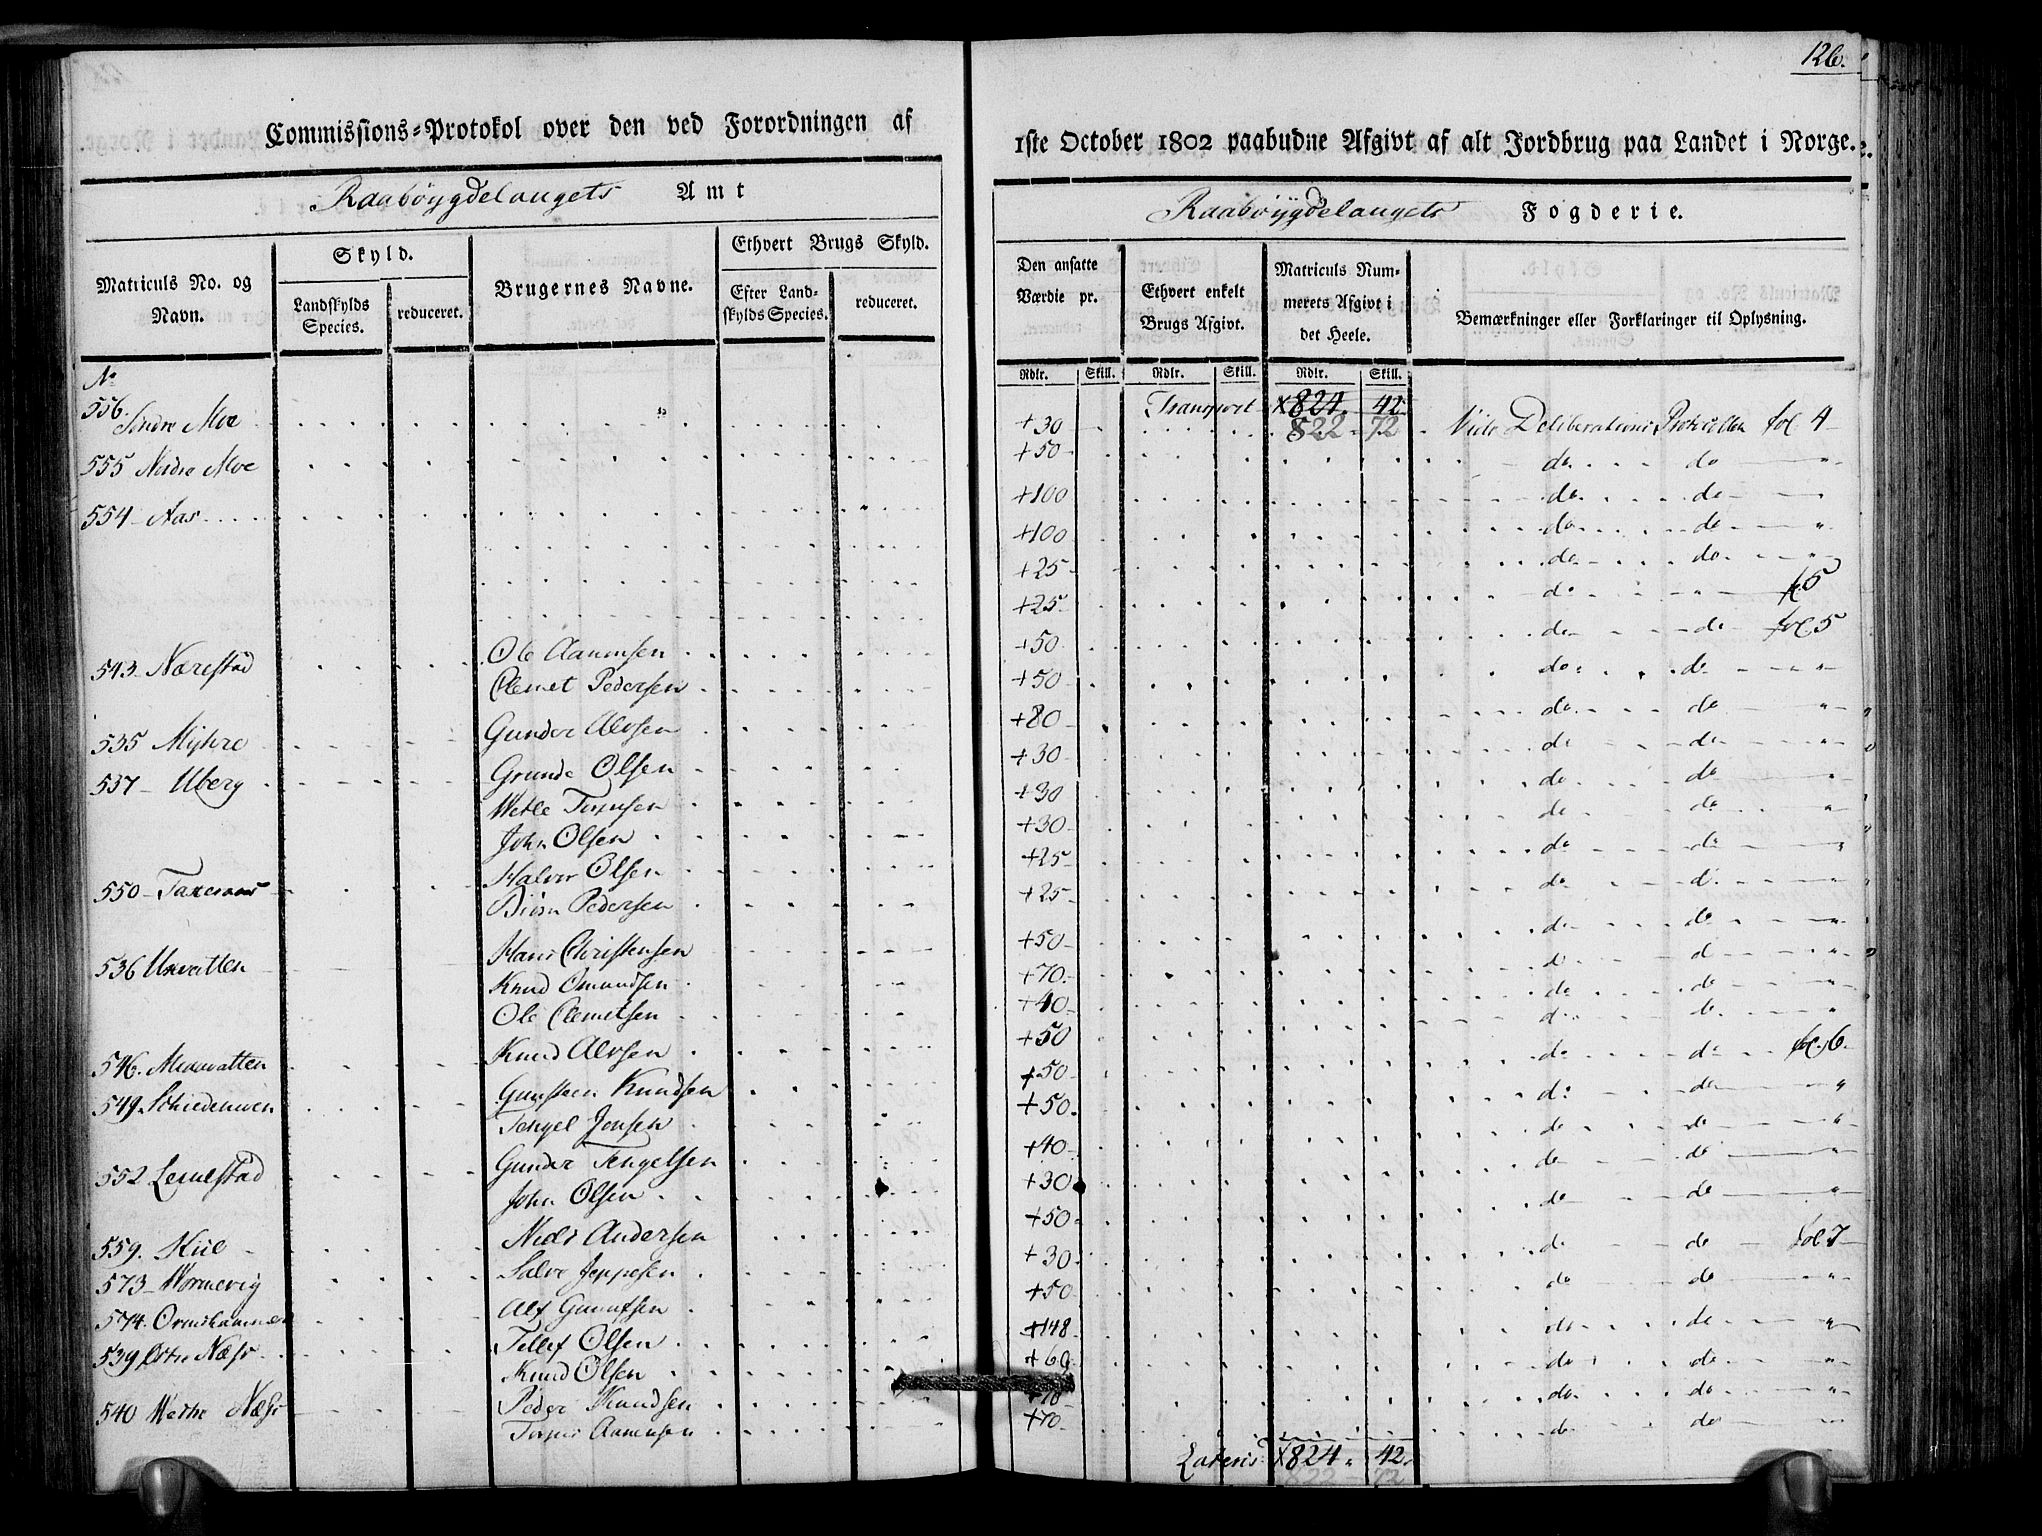 126.
Commissions-Protokol over den ved Forordningen af
1ste October 1802 paabudne Afgivt af alt Jordbrug paa Landet i Norge.
Raabøygdelaugets Amt
Raabøygdelaugets Fogderie.
Matriculs No. og Navn.
Skyld.
Landskylds Species.
reduceret.
Brugernes Navne.
Ethvert Brugs Skyld.
Efter Landskylds Species.
reduceret.
Den ansatte Værdie pr.
Ethvert enkelt Brugs Afgivt.
Matriculs Nummerets Afgivt i det Heele.
Bemærkninger eller Forklaringer til Oplysning.
Rdlr. Skill. Rdlr. Skill. Rdlr. Skill.
No
Transport X824. 42
822 - 72
556. Søndre Moe +30 Vide Deliberations Protocollen fol 4
555 Nordre Moe +50 do do "
554 Aas +100 do do "
+100 do do "
+25 do do "
+25 do " f 5
543 Nærestad Ole Aanensen +50 do do fol. 5
Clemet Pedersen +50 do do "
535 Myhre Gunder Alvsen +80 do do "
537 Uberg Grunde Olsen +30 do do "
Wetle Torsen +30 do do "
John Olsen +30 do do "
550 Halvor Olsen +25 do do "
Biørn Pedersen +25 do do "
536 Uxvatten Hans Christensen +50 do do "
Knud Omundsen +70 do do "
Ole Clemetsen +40 do do "
546. Knud Alvsen +50 do do "
549. Gunsteen Knudsen +50 do do fol. 6
Tengel Jonsen +50 do do "
552 Lemestad Gunder Tengelsen +40 do do "
John Olsen +30 do do "
559. Kiil Niels Andersen +50 do do "
573 Wormevig Salve Jeppesen +30 do do fol 7
574. Alf +50 do do "
539 Østre Næss Tellef Olsen +148 do do "
Knud Olsen +60 do do "
540 Westre Næss Peder Knudsen do do "
Aanensen +70 do do "
Lateris X824. 42.
822 - 72